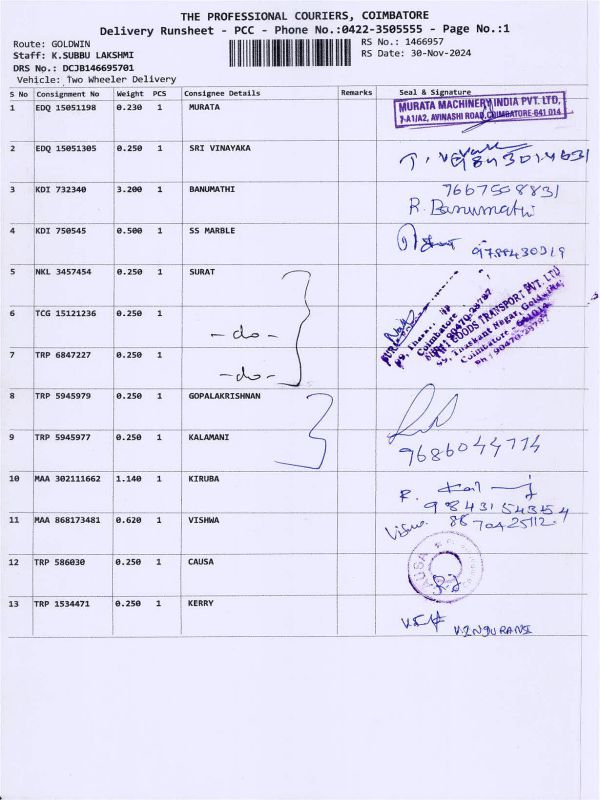 THE PROFESSIONAL COURIERS, COIMBATORE
Delivery Runsheet - PCC - Phone No.:0422-3505555 - Page No.:1
Route: GOLDWIN
RS No.: 1466957
Staff: K.SUBBU LAKSHMI
RS Date: 30-Nov-2024
DRS No.: DCJB146695701
Vehicle: Two Wheeler Delivery
S No Consignment No Weight PCS Consignee Details Remarks Seal & Signature
1 EDQ 15051198 0.230 1 MURATA
MURATA MACHINERY INDIA PVT. LTD,
7-A1/A2, AVINASHI ROAD, COIMBATORE-641 014
2 EDQ 15051305 0.250 1 SRI VINAYAKA
3 KDI 732340 3.200 1 BANUMATHI 7667508831
R. Banumathi
4 KDI 750545 0.500 1 SS MARBLE
5 NKL 3457454 0.250 1 SURAT
6 TCG 15121236 0.250 1
- do -
7 TRP 6847227 0.250 1
- do -
GOODS TRANSPORT PVT. LTD
Coimbatore
8 TRP 5945979 0.250 1 GOPALAKRISHNAN
9 TRP 5945977 0.250 1 KALAMANI
9686044774
10 MAA 302111662 1.140 1 KIRUBA
11 MAA 868173481 0.620 1 VISHWA
12 TRP 586030 0.250 1 CAUSA
CAUSA
13 TRP 1534471 0.250 1 KERRY